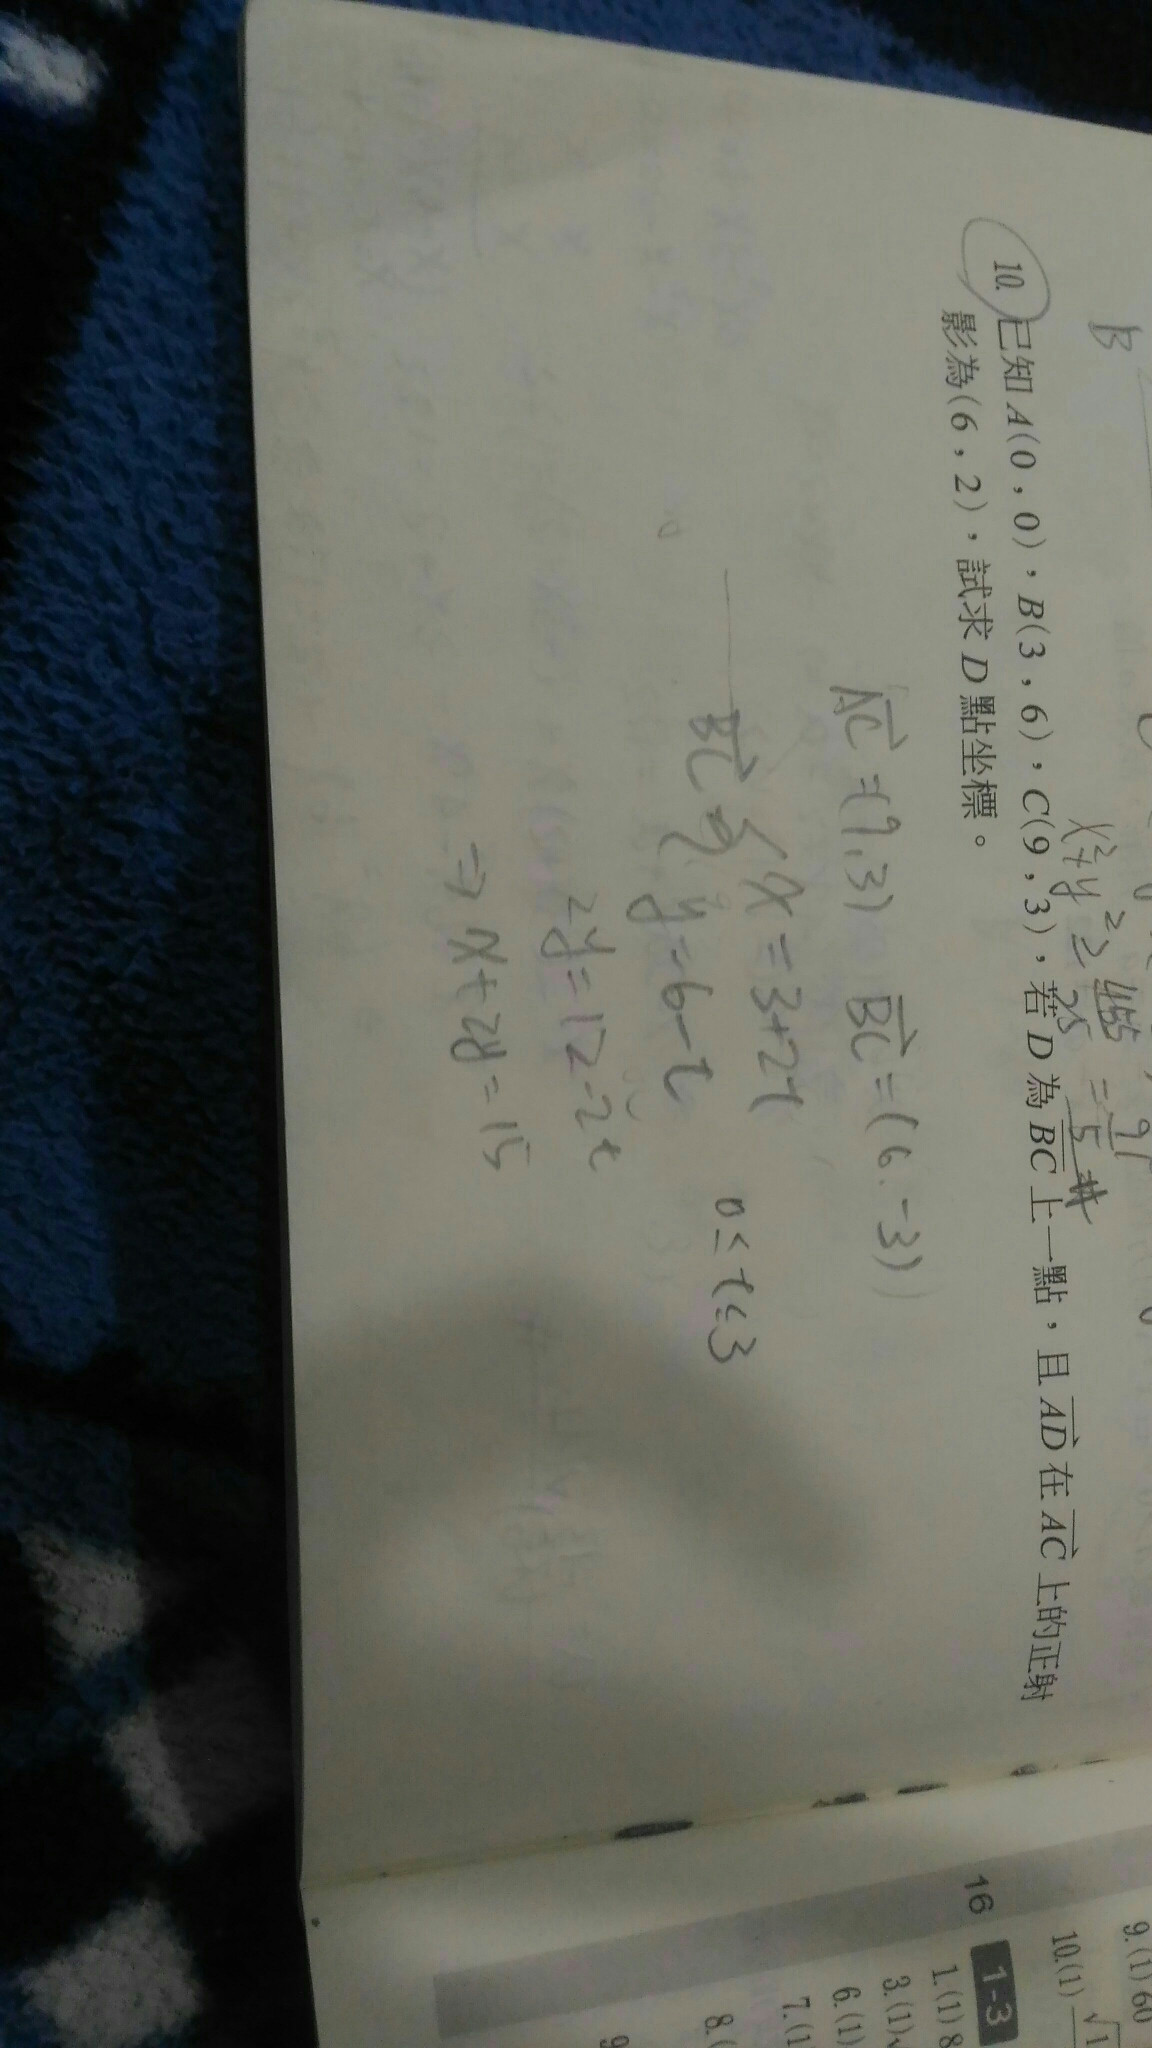 B
x²+y² ≥
25
10. 已知 A(0,0),B(3,6),C(9,3),若 D 為 BC 上一點,且 AD 在 AC 上的正射
影為(6,2),試求 D 點坐標。
AC = (9,3) BC = (6,-3)
BC ⇒ { x = 3+2t
y = 6-t
0 ≤ t ≤ 3
2y = 12-2t
⇒ x+2y = 15
16
1-3
9. (1) 60
10. (1)
1. (1) 8
3. (1)
6. (1)
7. (1
8. (
9